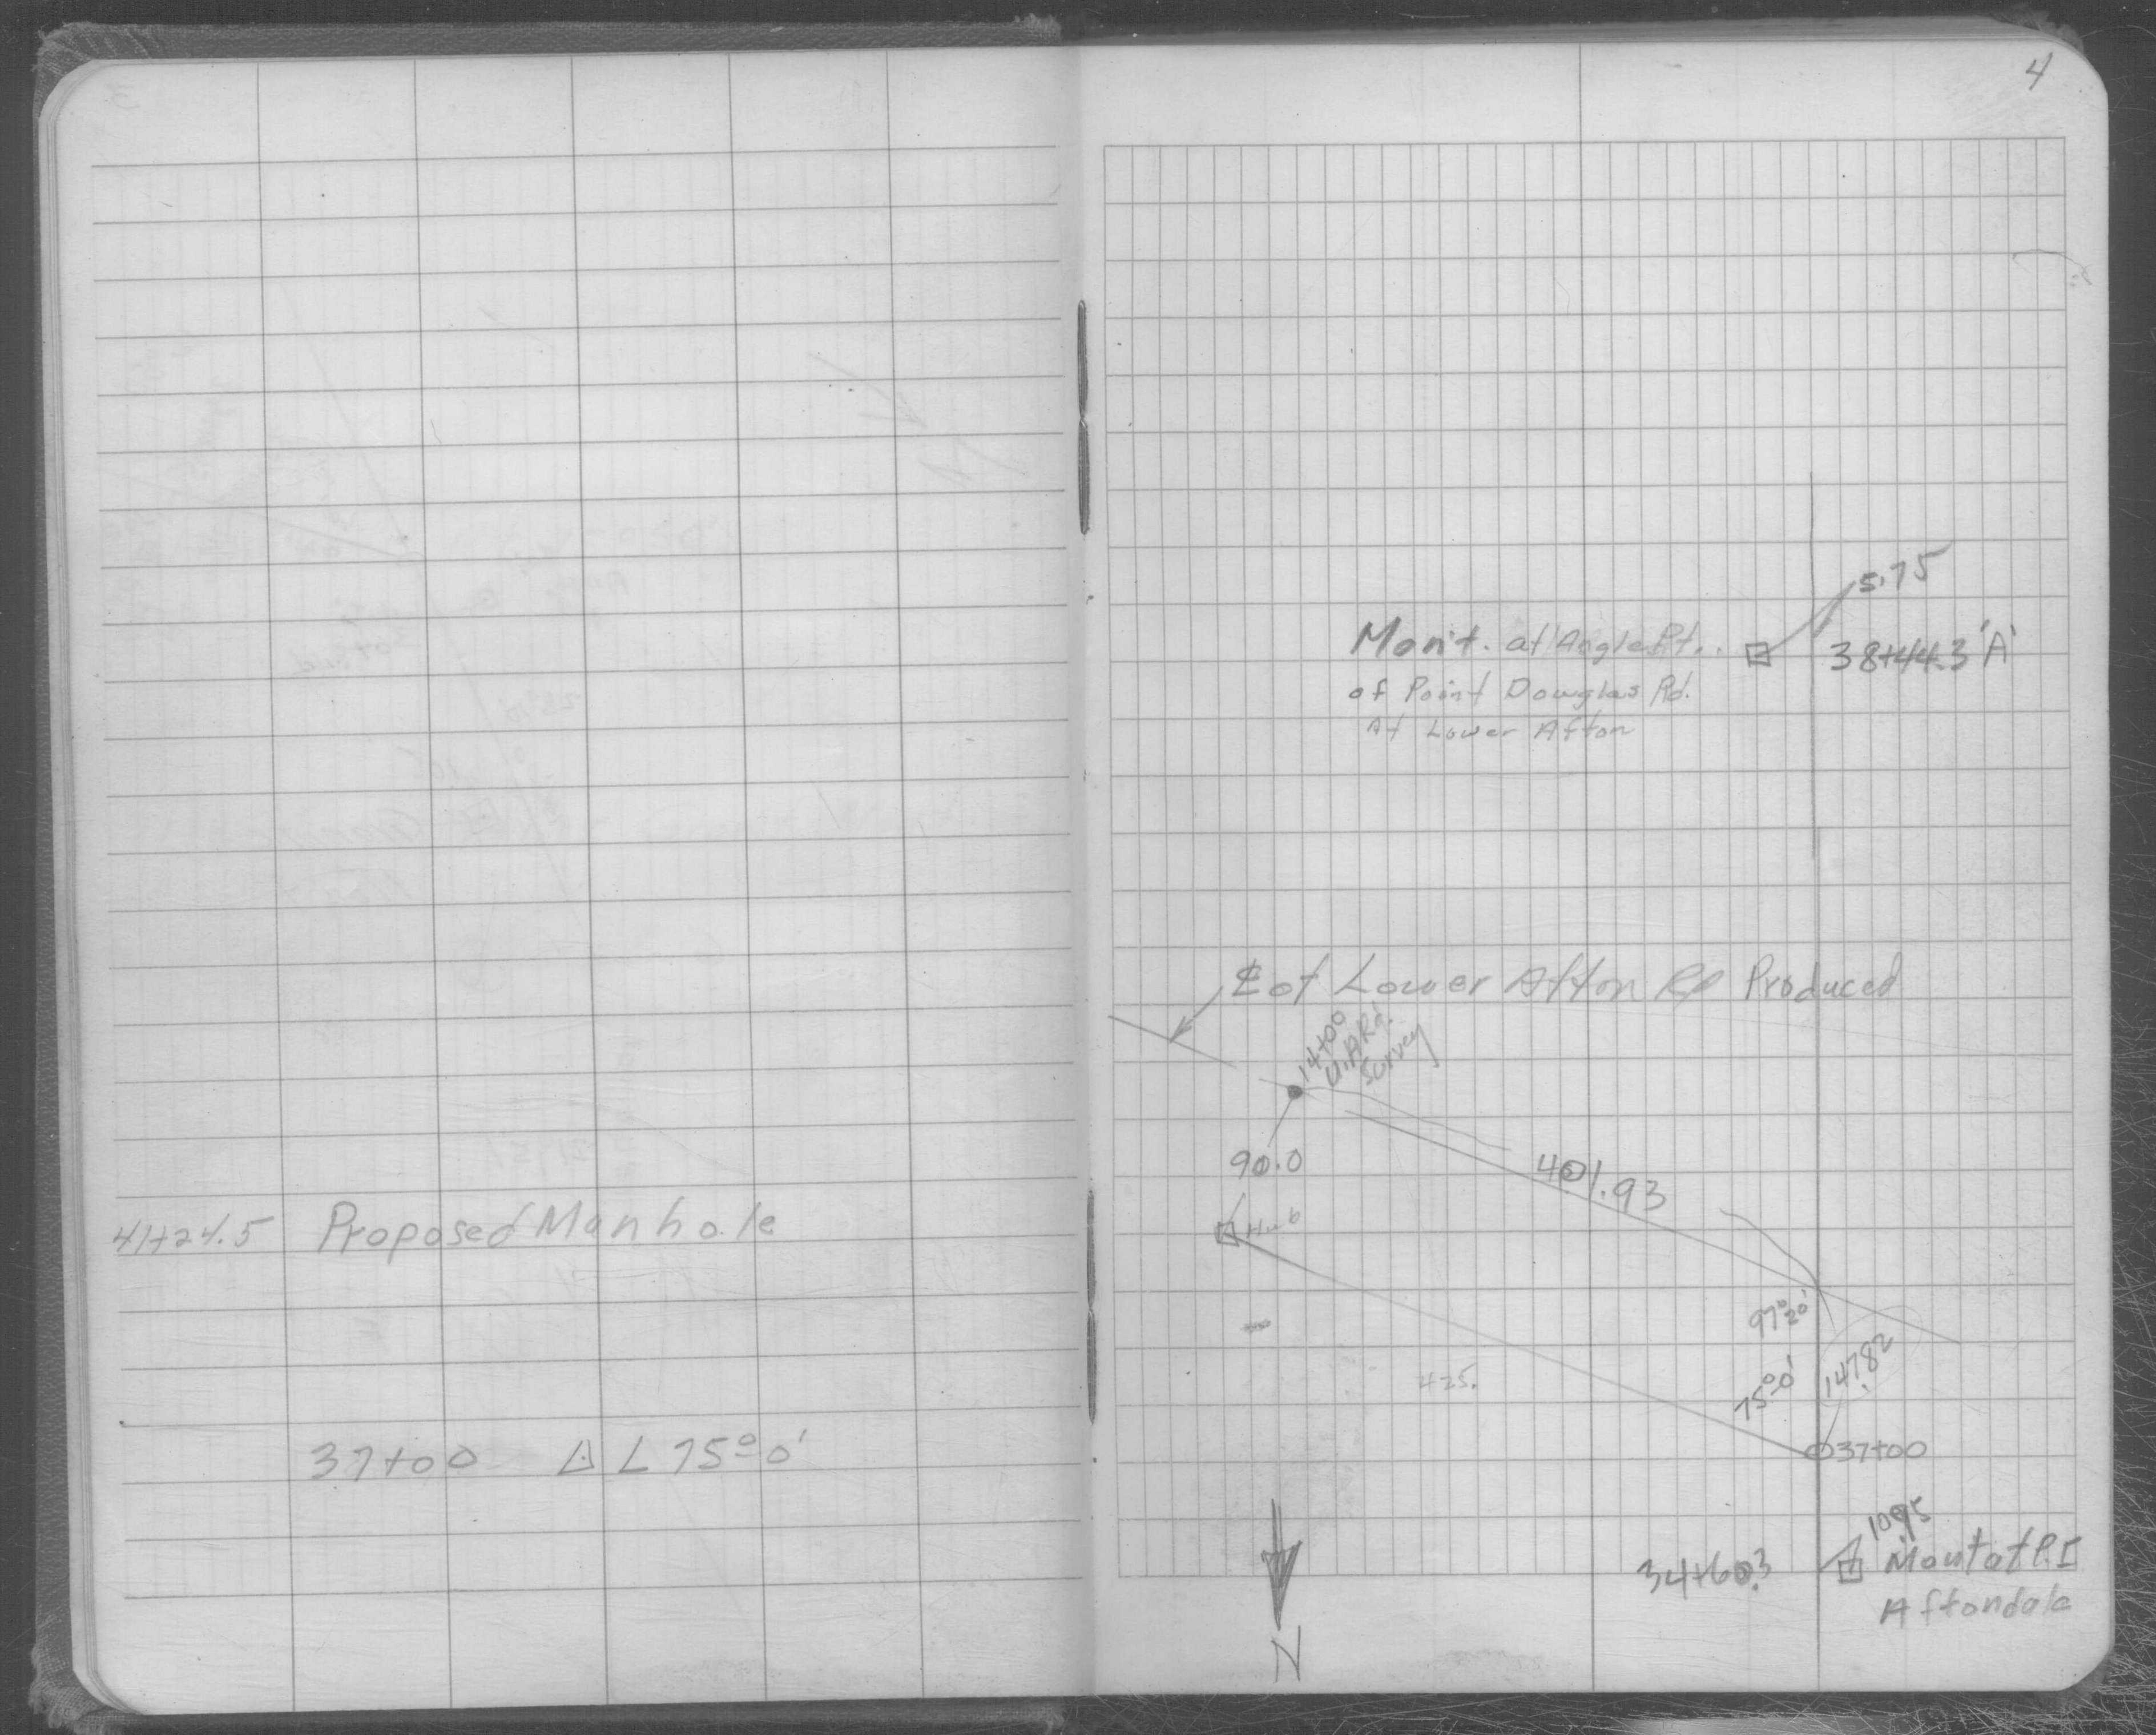 4
5.75
Mon't. at Angle Pt.
38+44.3 'A'
of Point Douglas Rd.
At Lower Afton
℄ of Lower Afton Rd Produced
14+00
Rd.
Survey
90.0
401.93
41+24.5 Proposed Manhole
Hub
97°20'
147.82
425.
75°0'
37+00 △ L 75°0'
37+00
10.95
34+60.3
Mon't at P.I
Aftondale
N